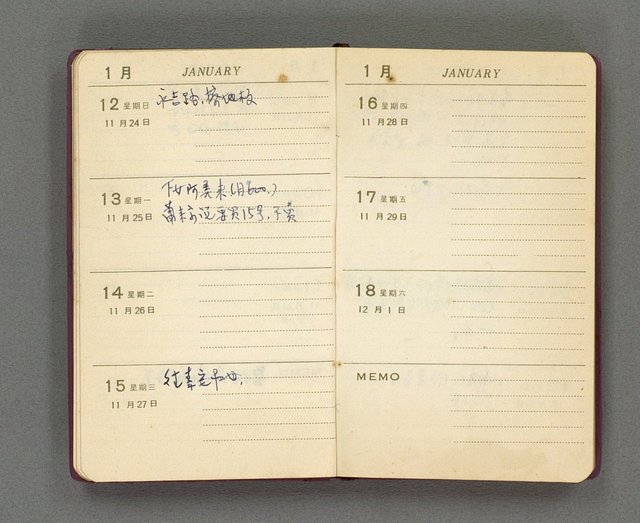 1月 JANUARY
12 星期日
11月24日
永吉路,擦地板
13 星期一
11月25日
下女阿美来(月600.)
15号,不
14 星期二
11月26日
15 星期三
11月27日
往
1月 JANUARY
16 星期四
11月28日
17 星期五
11月29日
18 星期六
12月1日
MEMO